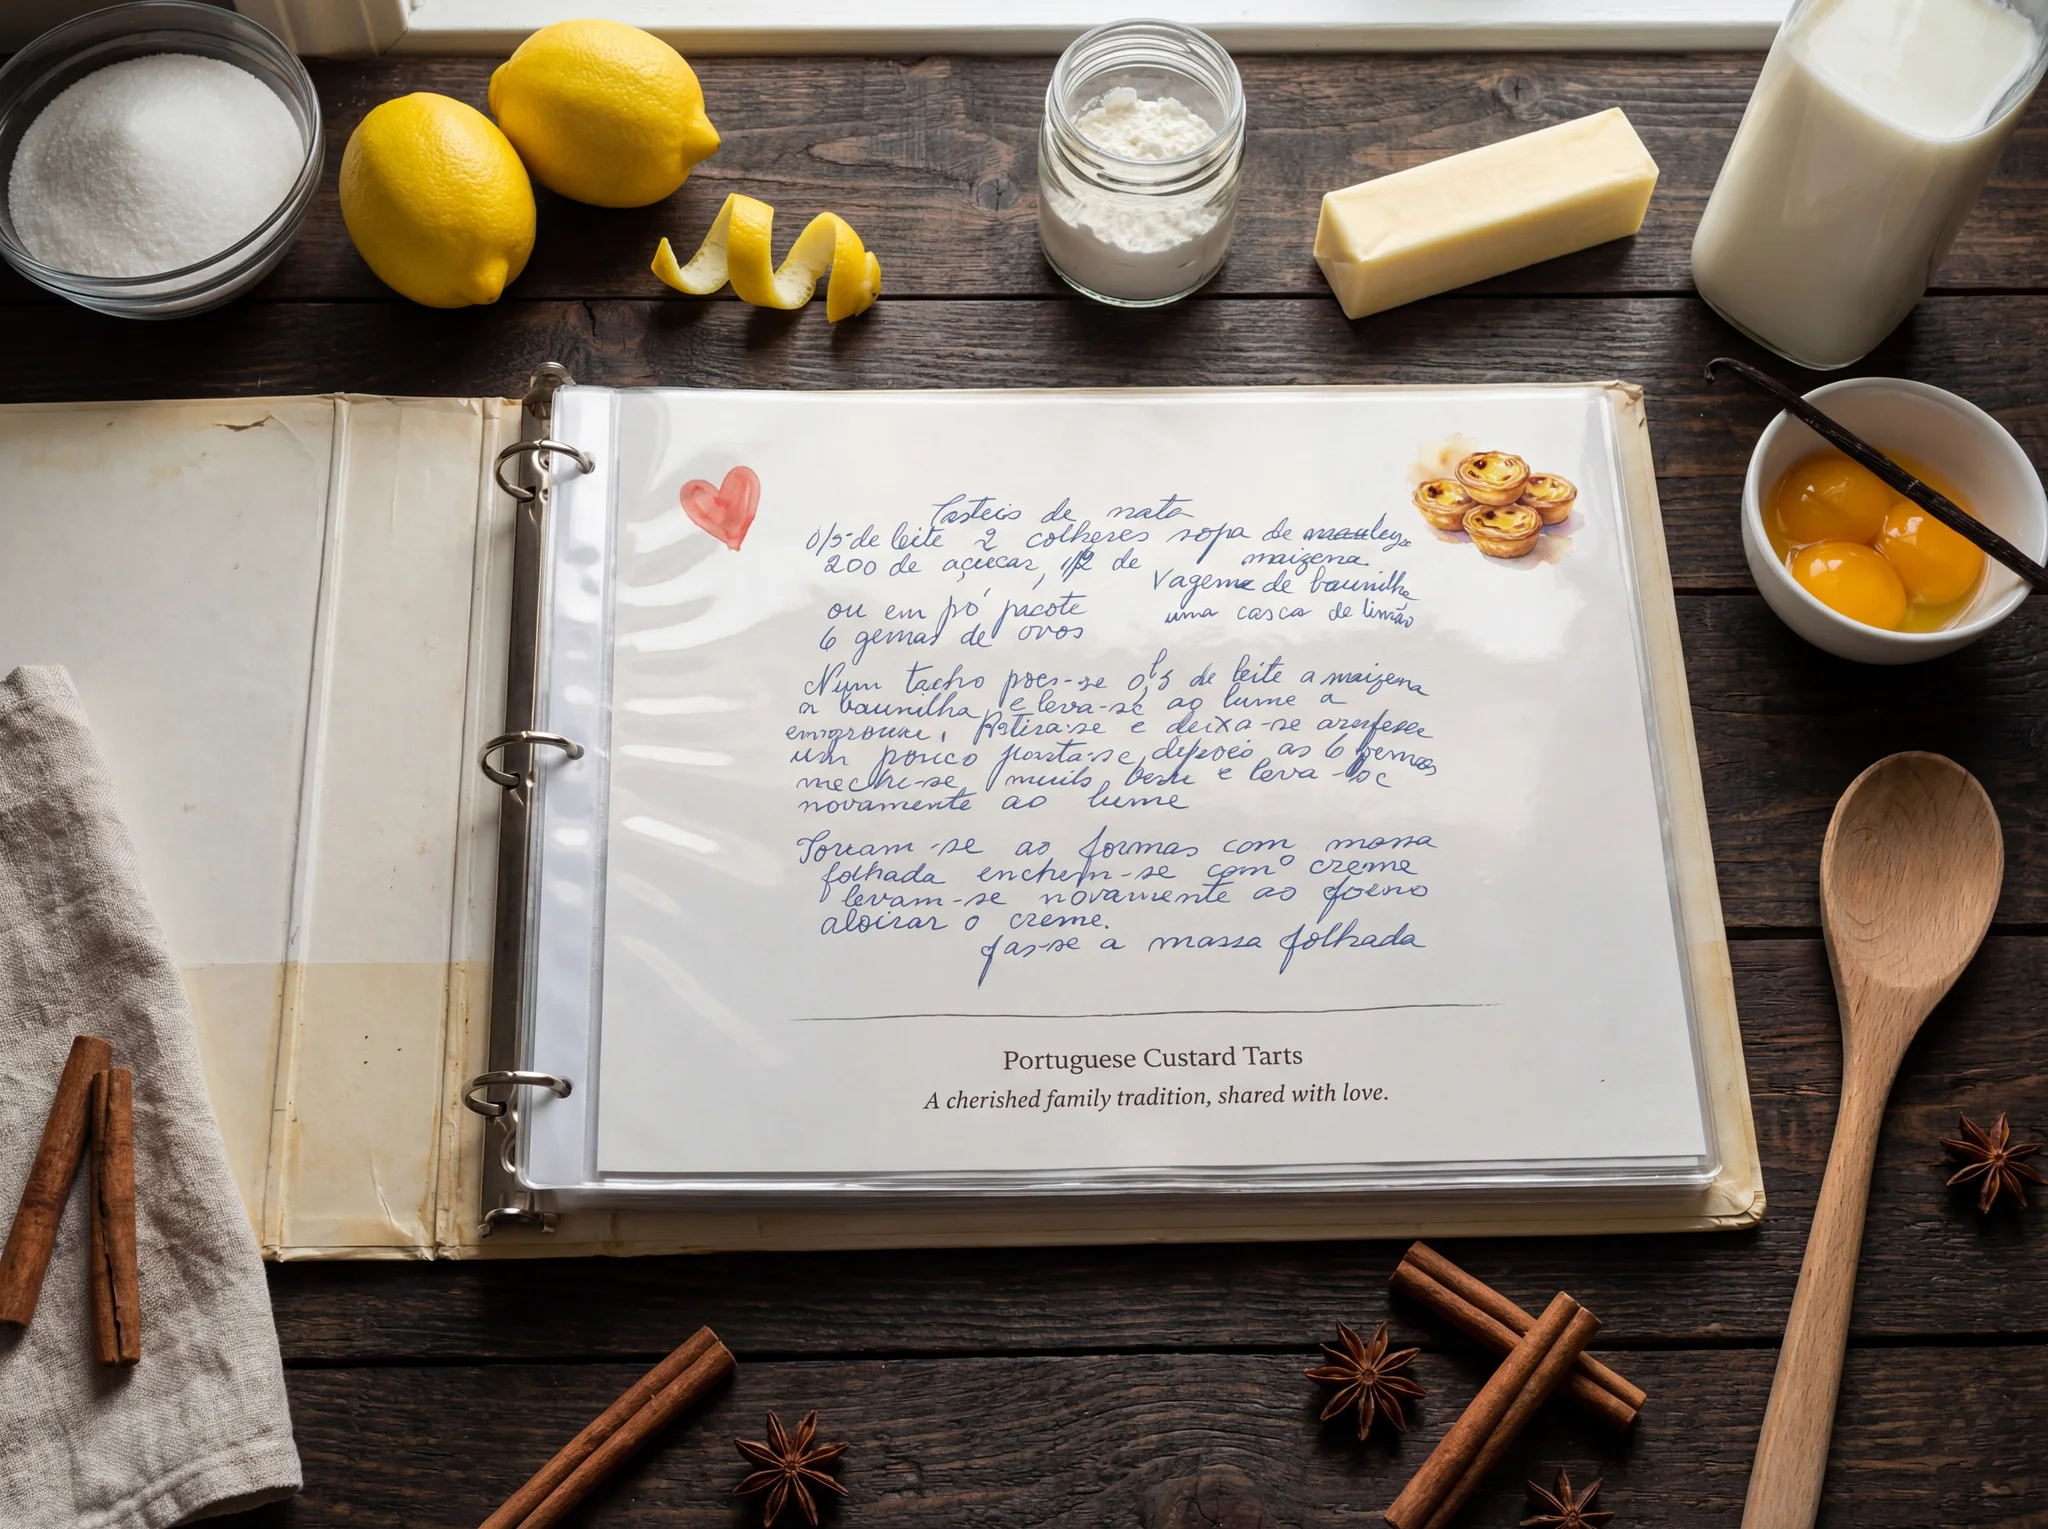 Pasteis de nata
0/5 de leite 2 colheres sopa de
200 de açucar, 1/2 de maizena
Vagem de baunilha
ou em pó pacote uma casca de limão
6 gemas de ovos
Num tacho poes-se 0,5 de leite a maizena
a baunilha, e leva-se ao lume a
Retira-se e deixa-se
um pouco depois as 6 gemas
muito bem e leva-
novamente ao lume
Forram-se as formas com massa
folhada enchem-se com o creme
levam-se novamente ao forno
aloirar o creme.
fas-se a massa folhada
Portuguese Custard Tarts
A cherished family tradition, shared with love.